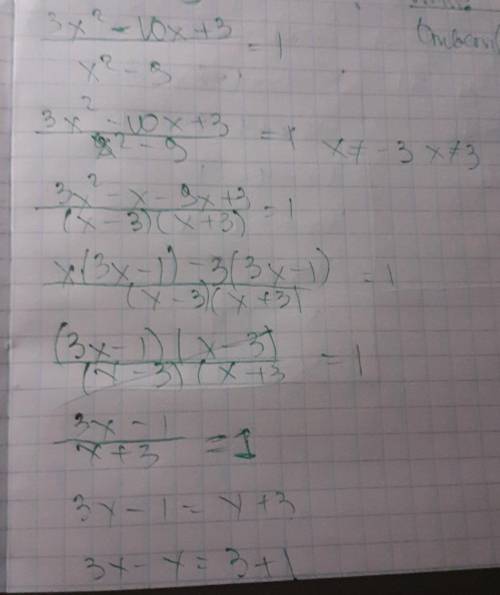 3x² - 10x + 3
/ x² - 9 = 1
3x² - 10x + 3 / x² - 9 = 1 x ≠ -3 x ≠ 3
3x² - x - 9x + 3 / (x - 3)(x + 3) = 1
x(3x - 1) - 3(3x - 1) / (x - 3)(x + 3) = 1
(3x - 1)(x - 3) / (x - 3)(x + 3 = 1
3x - 1 / x + 3 = 1
3x - 1 = x + 3
3x - x = 3 + 1